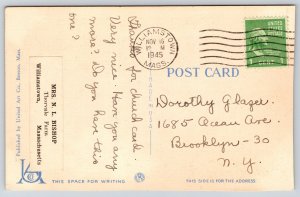 Thanks for church card.
Very nice. Have you any
more? Do you have this
MRS. N. L. BISHOP
Thornole Farm,
Williamstown, Massachusetts
Published by United Art Co., Boston, Mass.
THIS SPACE FOR WRITING
WILLIAMSTOWN
NOV 16
M
1945
MASS.
POST CARD
Dorothy Glazer
1685 Ocean Ave.
Brooklyn-30
N. Y.
THIS SIDE IS FOR THE ADDRESS